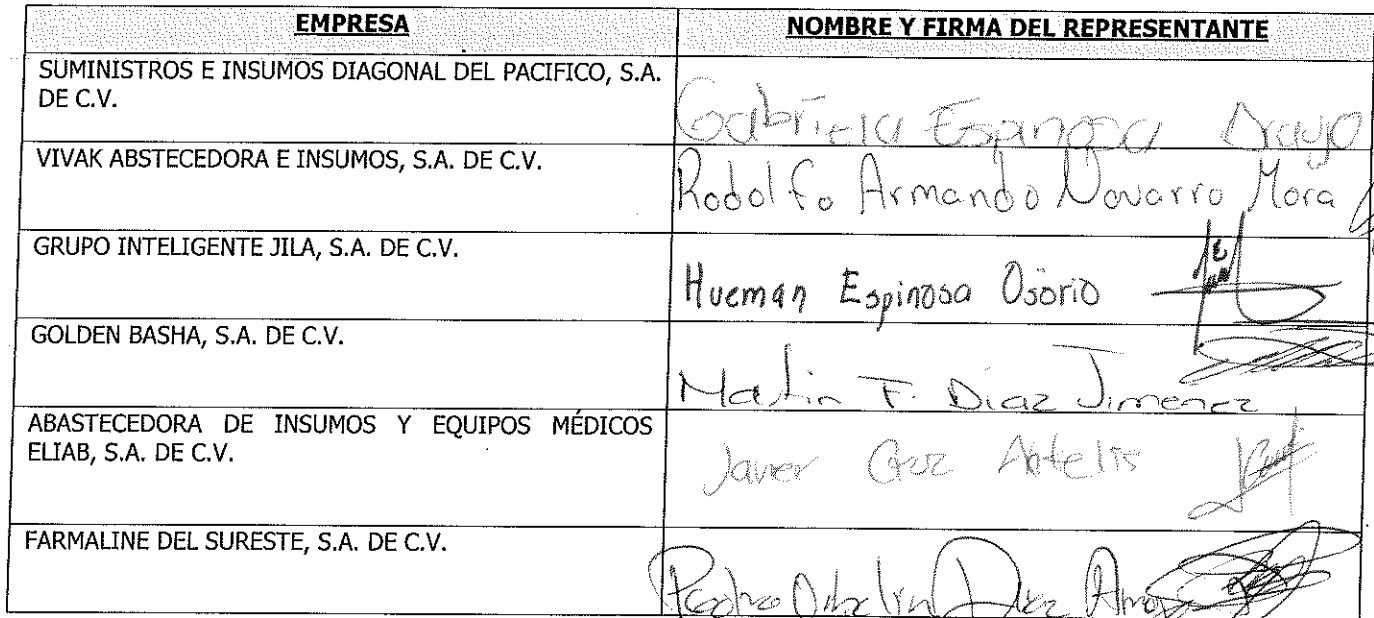 EMPRESA
NOMBRE Y FIRMA DEL REPRESENTANTE
SUMINISTROS E INSUMOS DIAGONAL DEL PACIFICO, S.A.
DE C.V.
Gabriela Espinosa Araujo
VIVAK ABSTECEDORA E INSUMOS, S.A. DE C.V.
Rodolfo Armando Navarro Mora
GRUPO INTELIGENTE JILA, S.A. DE C.V.
Hueman Espinosa Osorio
GOLDEN BASHA, S.A. DE C.V.
Martin F. Diaz Jimenez
ABASTECEDORA DE INSUMOS Y EQUIPOS MÉDICOS
ELIAB, S.A. DE C.V.
Javier Cruz
FARMALINE DEL SURESTE, S.A. DE C.V.
Pedro Diaz